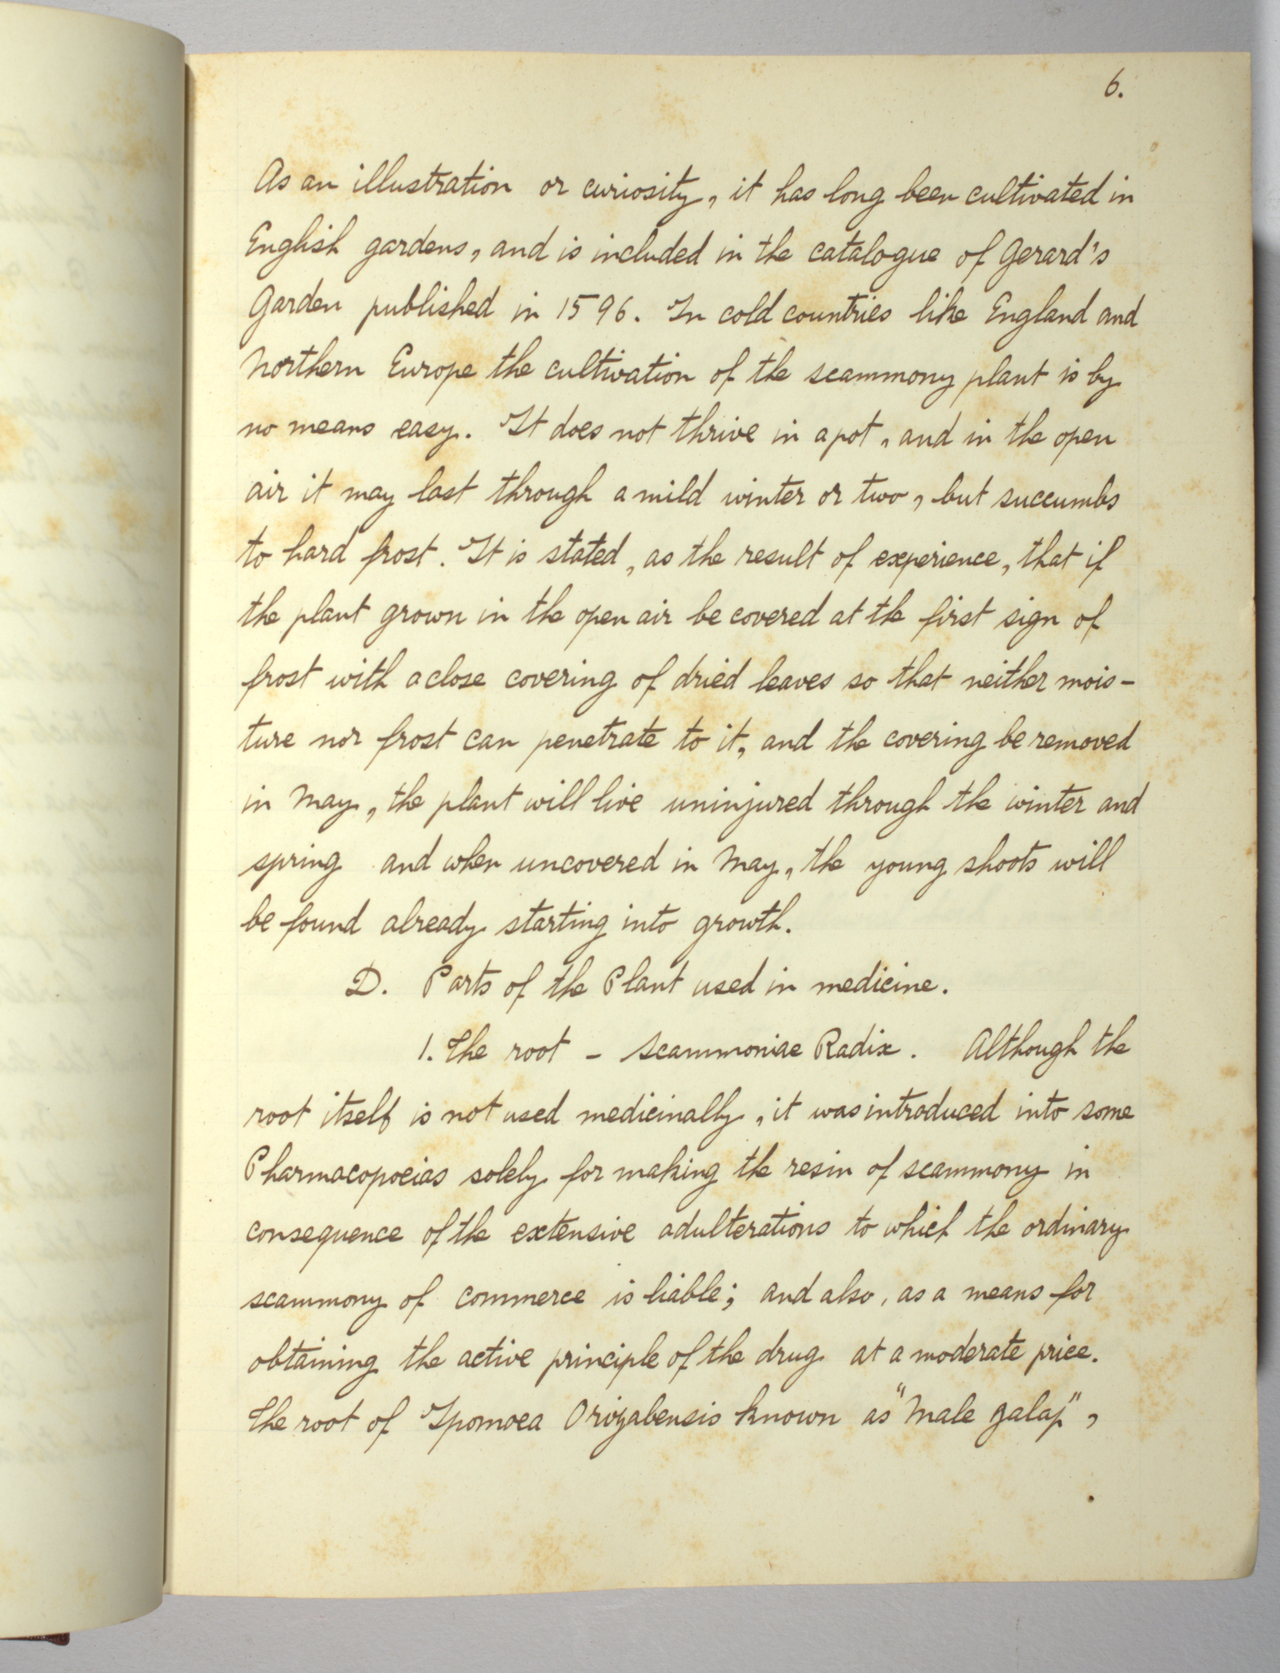 6.
As an illustration or curiosity, it has long been cultivated in
English gardens, and is included in the catalogue of Gerard's
Garden published in 1596. In cold countries like England and
Northern Europe the cultivation of the scammony plant is by
no means easy. It does not thrive in a pot, and in the open
air it may last through a mild winter or two, but succumbs
to hard frost. It is stated, as the result of experience, that if
the plant grown in the open air be covered at the first sign of
frost with a close covering of dried leaves so that neither mois-
ture nor frost can penetrate to it, and the covering be removed
in May, the plant will live uninjured through the winter and
spring and when uncovered in May, the young shoots will
be found already starting into growth.
D. Parts of the Plant used in medicine.
1. The root - Scammoniae Radix. Although the
root itself is not used medicinally, it was introduced into some
Pharmacopoeias solely for making the resin of scammony in
consequence of the extensive adulterations to which the ordinary
scammony of commerce is liable; and also, as a means for
obtaining the active principle of the drug at a moderate price.
The root of Ipomoea Orizabensis known as "Male Jalap",